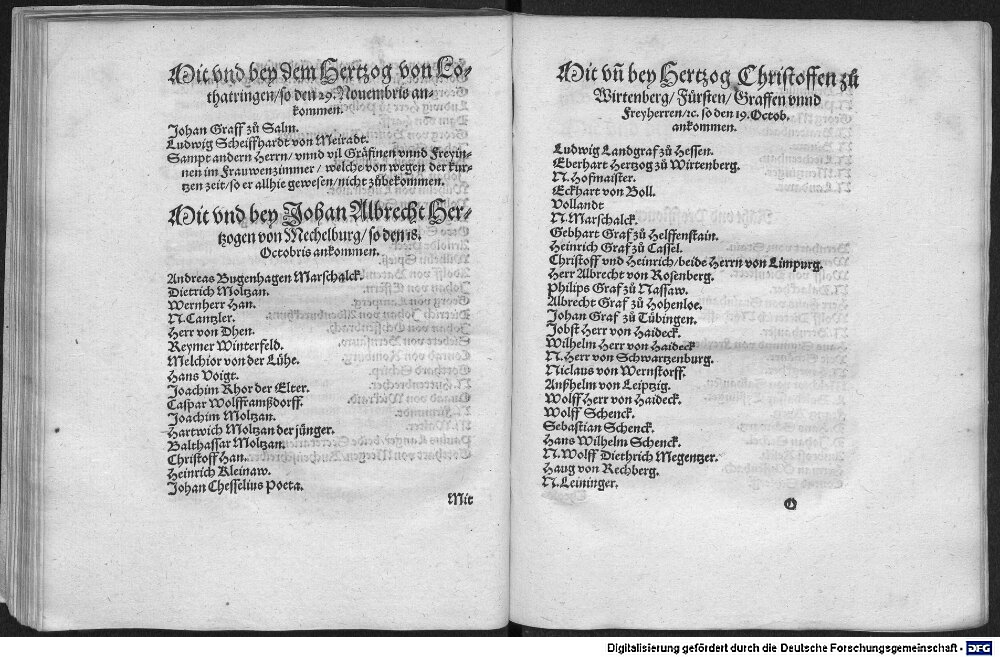 Mit vnd bey dem Hertzog von Lo-
thatringen/so den 29. Nouembris an-
kommen.
Johan Graff zů Salm.
Ludwig Scheiffhardt von Meiradt.
Sampt andern Herrn/vnnd vil Gräfinen vnnd Freyin-
nen im Frauwenzimmer/welche von wegen der kur-
tzen zeit/so er allhie gewesen/nicht zůbekommen.
Mit vnd bey Johan Albrecht Her-
tzogen von Mechelburg/so den 18.
Octobris ankommen.
Andreas Bugenhagen Marschalck.
Dietrich Moltzan.
Wernherr Han.
N. Cantzler.
Herr von Dhen.
Reyner Winterfeld.
Melchior von der Lühe.
Hans Voigt.
Joachim Khor der Elter.
Caspar Wolfframßdorff.
Joachim Moltzan.
Hartwich Moltzan der jünger.
Balthassar Moltzan.
Christoff Han.
Heinrich Kleinaw.
Johan Chesselius Poeta.
Mit
Mit vñ bey Hertzog Christoffen zů
Wirtenberg/Fürsten/Graffen vnnd
Freyherren/ꝛc. so den 19. Octob.
ankommen.
Ludwig Landgraf zů Hessen.
Eberhart Hertzog zů Wirtenberg.
N. Hofmaister.
Eckhart von Boll.
Vollandt
N. Marschalck.
Gebhart Graf zů Helffenstain.
Heinrich Graf zů Cassel.
Christoff vnd Heinrich/beide Herrn von Limpurg.
Herr Albrecht von Rosenberg.
Philips Graf zů Nassaw.
Albrecht Graf zů Hohenloe.
Johan Graf zů Tübingen.
Jobst Herr von Haideck.
Wilhelm Herr von Haideck
N. Herr von Schwartzenburg.
Niclaus von Wernstorff.
Anßhelm von Leiptzig.
Wolff Herr von Haideck.
Wolff Schenck.
Sebastian Schenck.
Hans Wilhelm Schenck.
N. Wolff Diethrich Megentzer.
Haug von Rechberg.
N. Leininger.
O
Digitalisierung gefördert durch die Deutsche Forschungsgemeinschaft - DFG